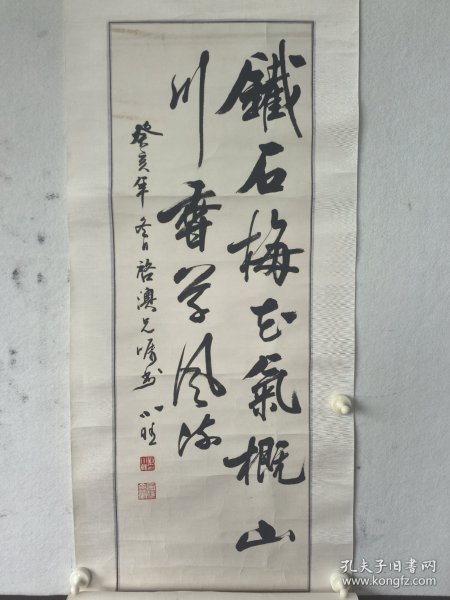 鐵石梅花氣概山
川香草風流
癸亥年冬日啓澳兄嘱书
孔夫子旧书网
www.kongfz.com